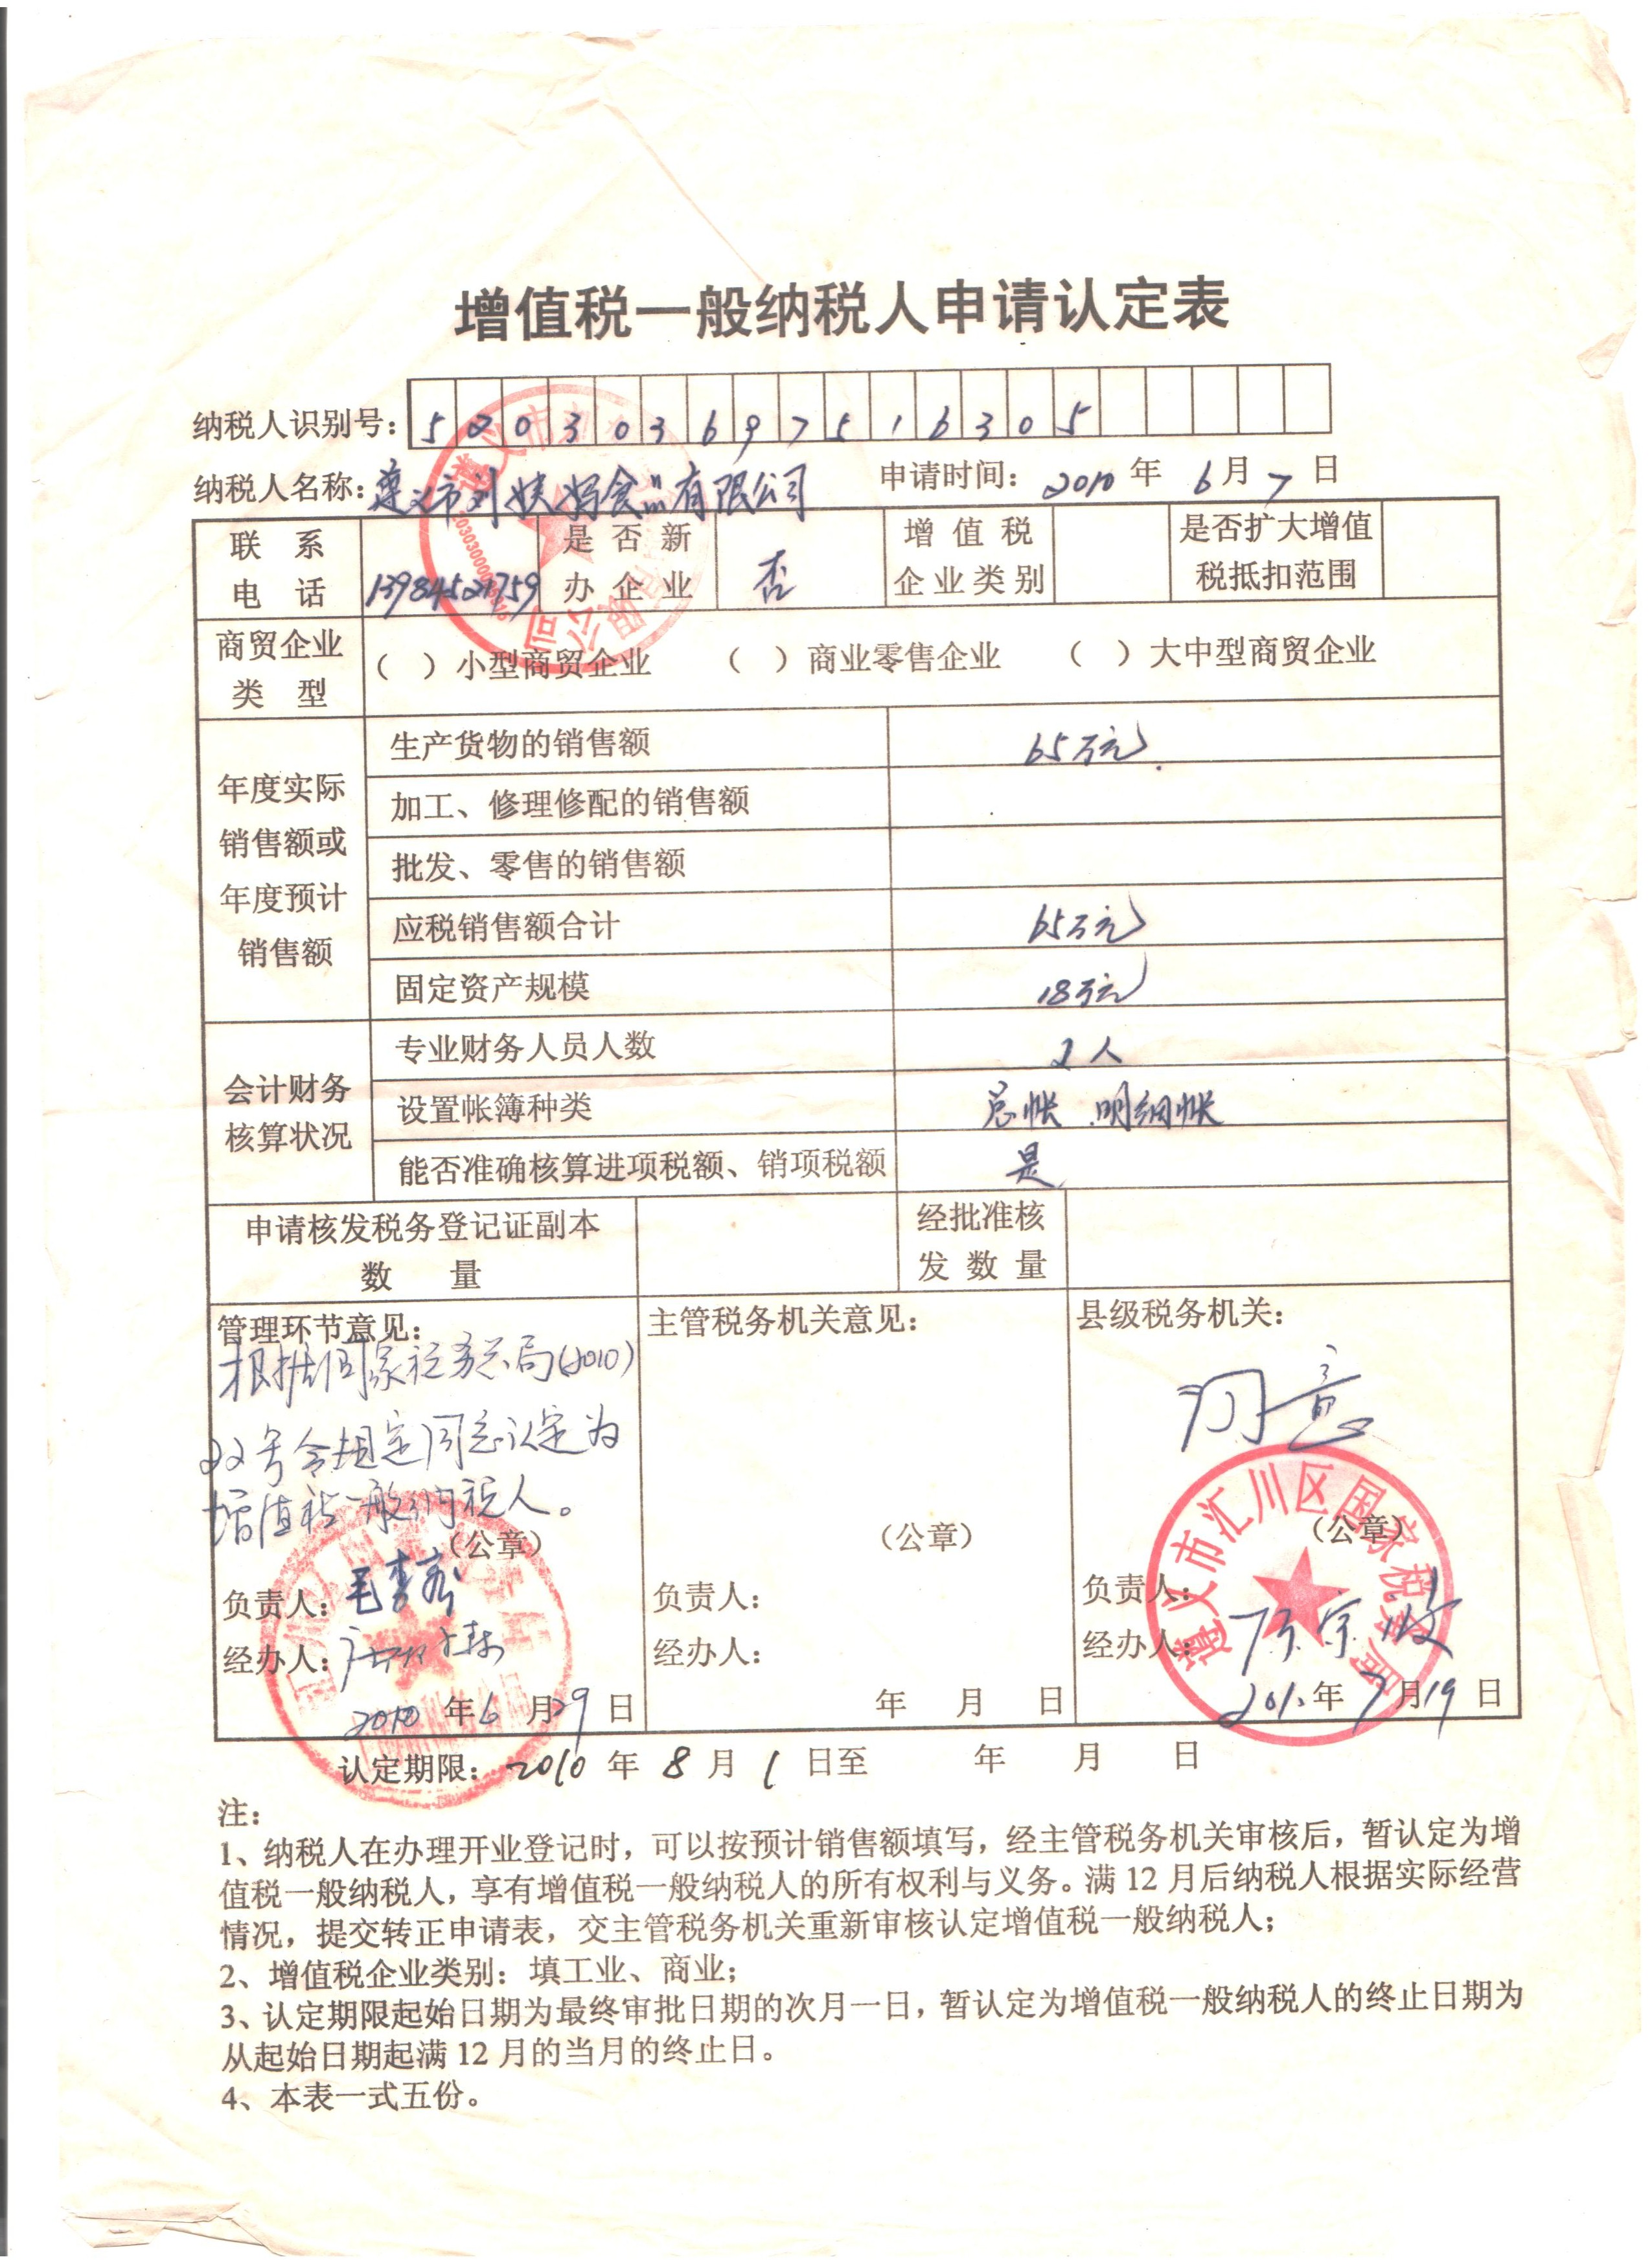 增值税一般纳税人申请认定表
纳税人识别号: 520303697516305
纳税人名称: 遵义市刘姨妈食品有限公司 申请时间: 2010 年 6 月 7 日
联系电话 13984521759 是否新办企业 否 增值税企业类别 是否扩大增值税抵扣范围
商贸企业类型 ( )小型商贸企业 ( )商业零售企业 ( )大中型商贸企业
年度实际销售额或年度预计销售额
生产货物的销售额 65万元
加工、修理修配的销售额
批发、零售的销售额
应税销售额合计 65万元
固定资产规模 18万元
会计财务核算状况
专业财务人员人数 2人
设置帐簿种类 总帐 明细帐
能否准确核算进项税额、销项税额 是
申请核发税务登记证副本数量 经批准核发数量
管理环节意见:
根据国家税务总局(2010)
22号令规定同意认定为
增值税一般纳税人。
(公章)
负责人:
经办人:
2010 年 6 月 29 日
主管税务机关意见:
(公章)
负责人:
经办人:
年 月 日
县级税务机关:
同意
遵义市汇川区国家税务局
(公章)
负责人:
经办人:
2010 年 7 月 19 日
认定期限: 2010 年 8 月 1 日至 年 月 日
注:
1、纳税人在办理开业登记时,可以按预计销售额填写,经主管税务机关审核后,暂认定为增
值税一般纳税人,享有增值税一般纳税人的所有权利与义务。满 12 月后纳税人根据实际经营
情况,提交转正申请表,交主管税务机关重新审核认定增值税一般纳税人;
2、增值税企业类别:填工业、商业;
3、认定期限起始日期为最终审批日期的次月一日,暂认定为增值税一般纳税人的终止日期为
从起始日期起满 12 月的当月的终止日。
4、本表一式五份。